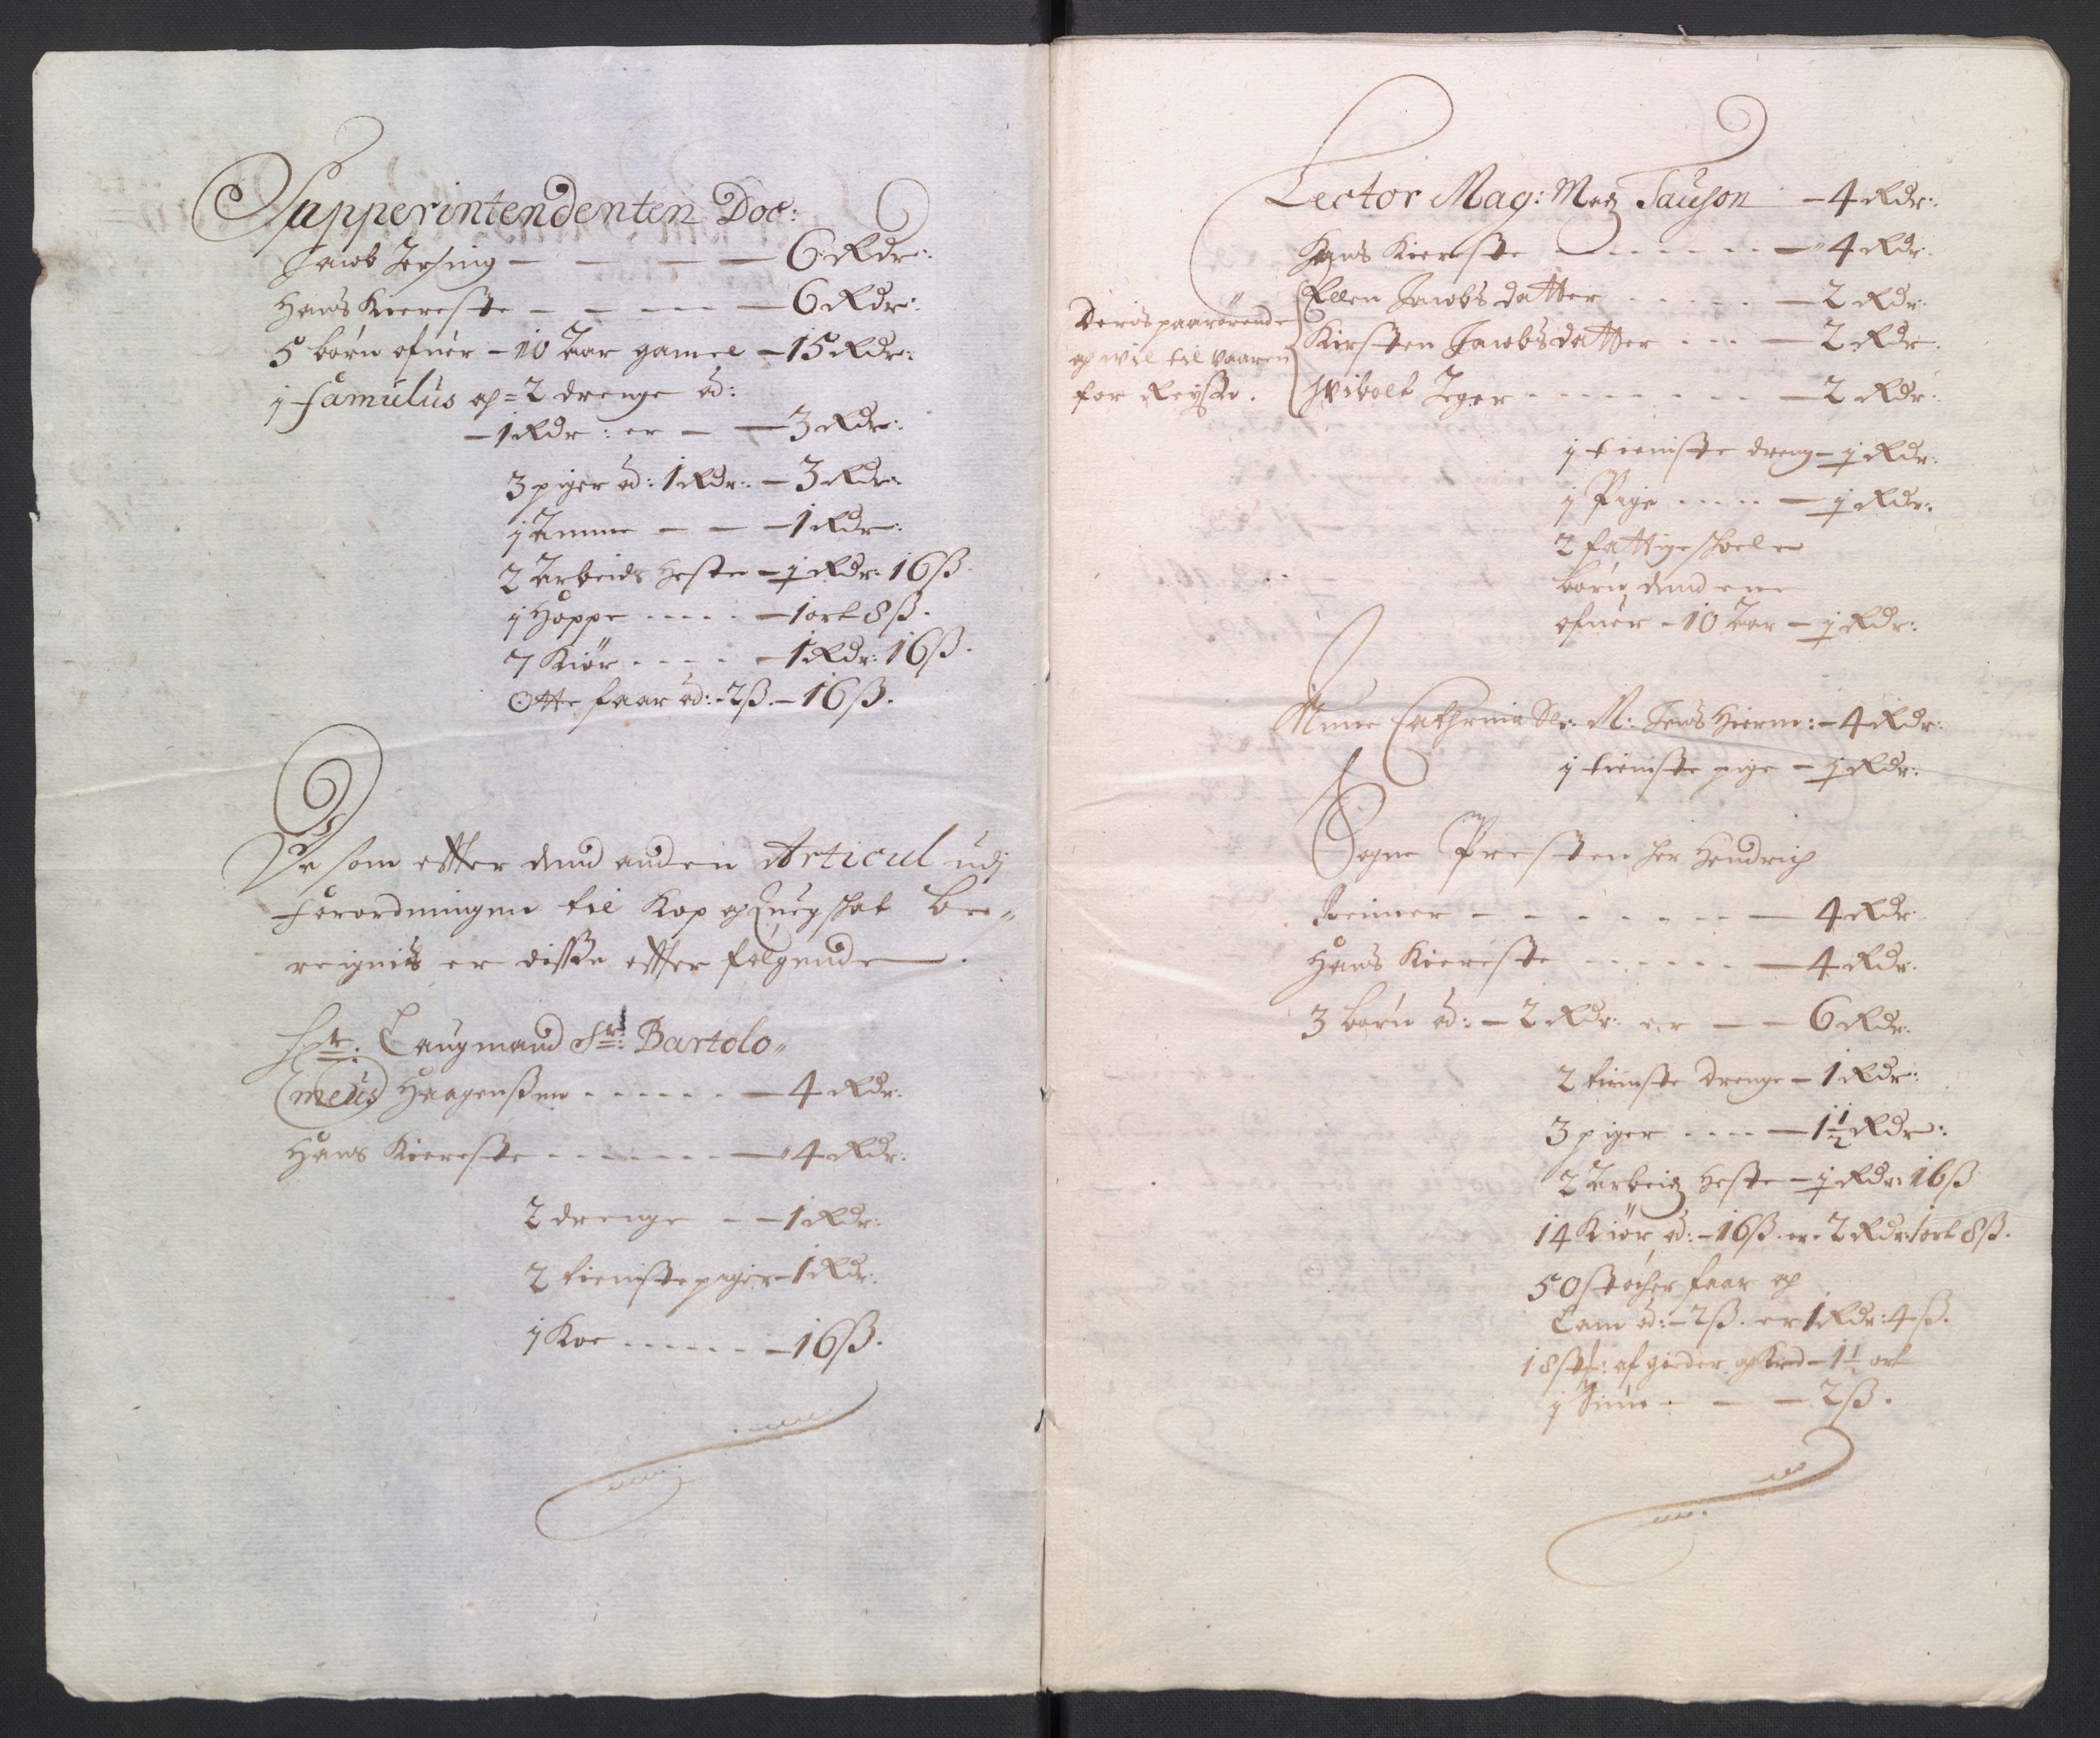 Supperintendenten Doc:
Jacob Jersing — — — — 6 Rdr:
Hans Kiereste — — — — 6 Rdr:
5 børn ofuer – 10 Aar gamel – 15 Rdr:
j famulus og = 2 drenge ád:
– 1 Rdr: er – — 3 Rdr:
3 piger ád: 1 Rdr: – 3 Rdr:
j Amme — — – 1 Rdr:
2 Arbeids Heste – j Rdr: 16 ß.
j Hoppe . . . . – 1 ort 8 ß.
7 Kiør . . . . – 1 Rdr: 16 ß.
Otte faar ád: – 2 ß. – 16 ß.
De som effter dend anden Articul udj
forordningen til Kop og Quegskat be„
reignis er disse effter følgende .
Hr. Laugmand Sr: Bartolo„
meus Haagensen . . . . . . — 4 Rdr:
Hans Kiereste . . . . . . . — 4 Rdr:
2 drenge – – 1 Rdr:
2 tieniste piger – 1 Rdr:
j Koe . . . . . . – 16 ß.
Lector Mag: Madz Tauson – 4 Rdr:
Hans Kiereste . . . . . . — 4 Rdr:
Deris paarørende
og wil til vaaren
for Reyse.
Ellen Jacobs datter . . . . . — 2 Rdr:
Kirsten Jacobsdatter . . . — 2 Rdr.
Wibolt Jeger . . . . . . . . — 2 Rdr:
j tieniste dreng – j Rdr:
j Pige . . . . . — j Rdr:
2 fattige skoele
børn, dend ene
ofuer – 10 Aar – j Rdr:
Anne Cathrina Sl: M: Jens Hierm: – 4 Rdr:
j tieniste pige – j Rdr:
Sogne Presten her Hendrich
Reimer — - - - - - — 4 Rdr:
Hans Kiereste . . . . . . — 4 Rdr.
3 børn ád: – 2 Rdr: er — – 6 Rdr:
2 tieniste drenge – 1 Rdr:
3 piger . . . . — 1 1/2 Rdr:
2 Arbeidz Heste – j Rdr: 16 ß
14 Kiør, ád: – 16 ß. er – 2 Rdr: 1 ort 8 ß.
50 støcher faar og
Lam ád: – 2 ß. er 1 Rdr: 4 ß.
18 st: af gieder og Kid – 1 1/2 ort
j Suin . — — 2 ß.